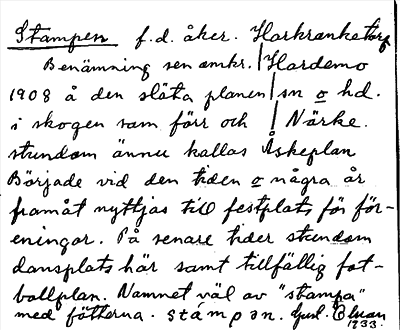 Stampen f.d. åker. Harkranketorp
Benämning sen omkr. Hardemo
1908 å den släta planen sn o hd.
i skogen som förr och Närke.
stundom ännu kallas Åskeplan
Började vid den tiden o några år
framåt nyttjas till festplats för för-
eningar. På senare tider stundom
dansplats här samt tillfällig fot-
bollplan. Namnet väl av "stampa"
med fötterna. stámpən. Gust. Elman
1933.